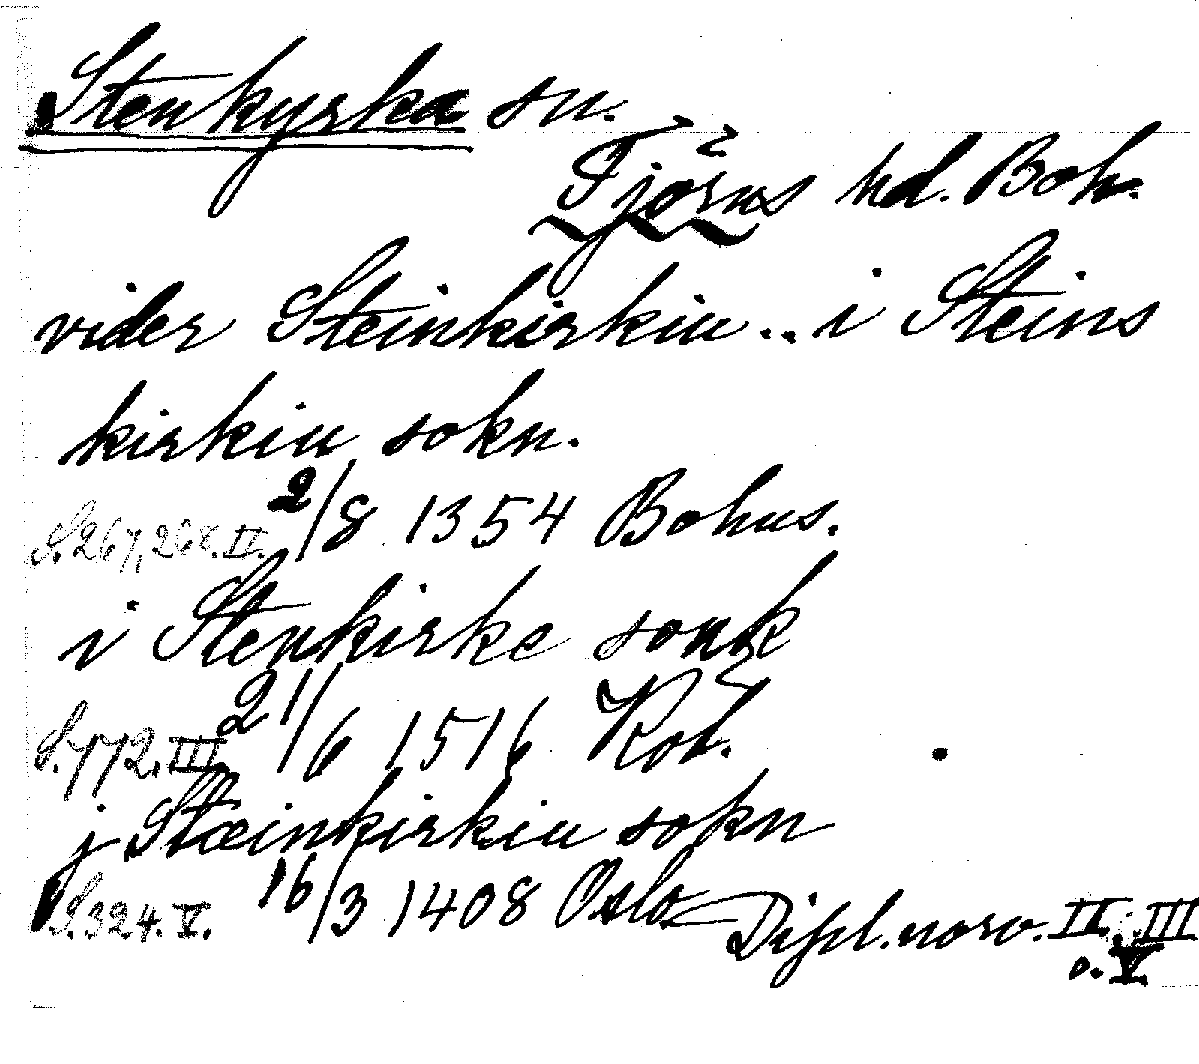 Stenkyrka sn.
Tjörns hd. Boh.
vider Steinkirkiu .. i Steins
kirkiu sokn.
S. 267, 268. II. 2/8 1354 Bohus.
i Stenkirke sonk
S. 772. III 21/6 1516 Kbh.
j Stæinkirkiu sokn
S. 324. V. 16/3 1408 Oslo Dipl. norv. II, III
o. V